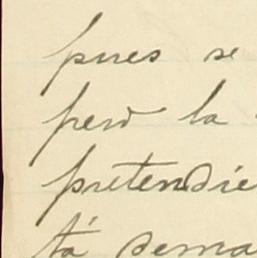 pues se
pero la
pretendie
tá sema